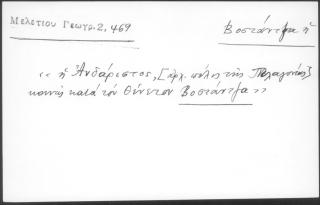 Μελετίου Γεωγρ. 2, 469
Βοστάντζα ἡ
« ἡ Ἀνδάριστος, [ἀρχ. πόλις τῆς Πελαγονίας]
κοινῶς κατά τόν Θύνετον Βοστάντζα »